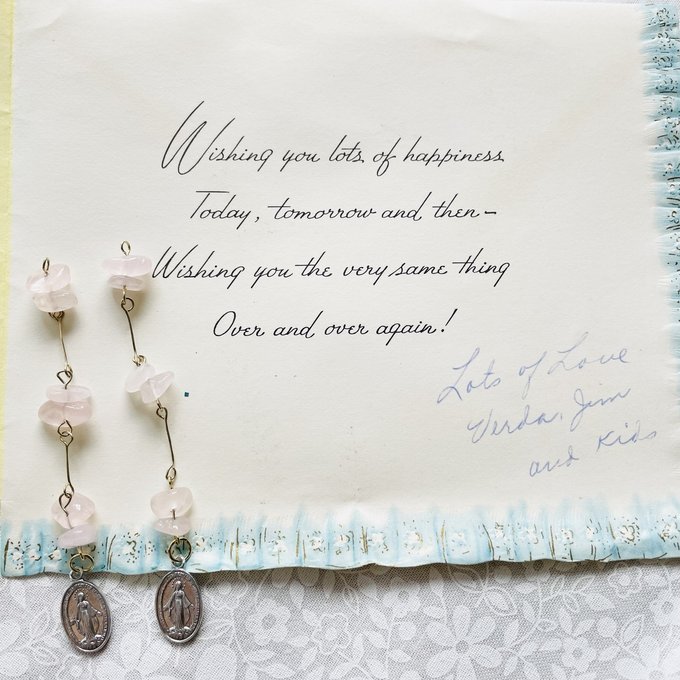 Wishing you lots of happiness
Today, tomorrow and then—
Wishing you the very same thing
Over and over again!
Lots of Love
Verda, Jim
and Kids